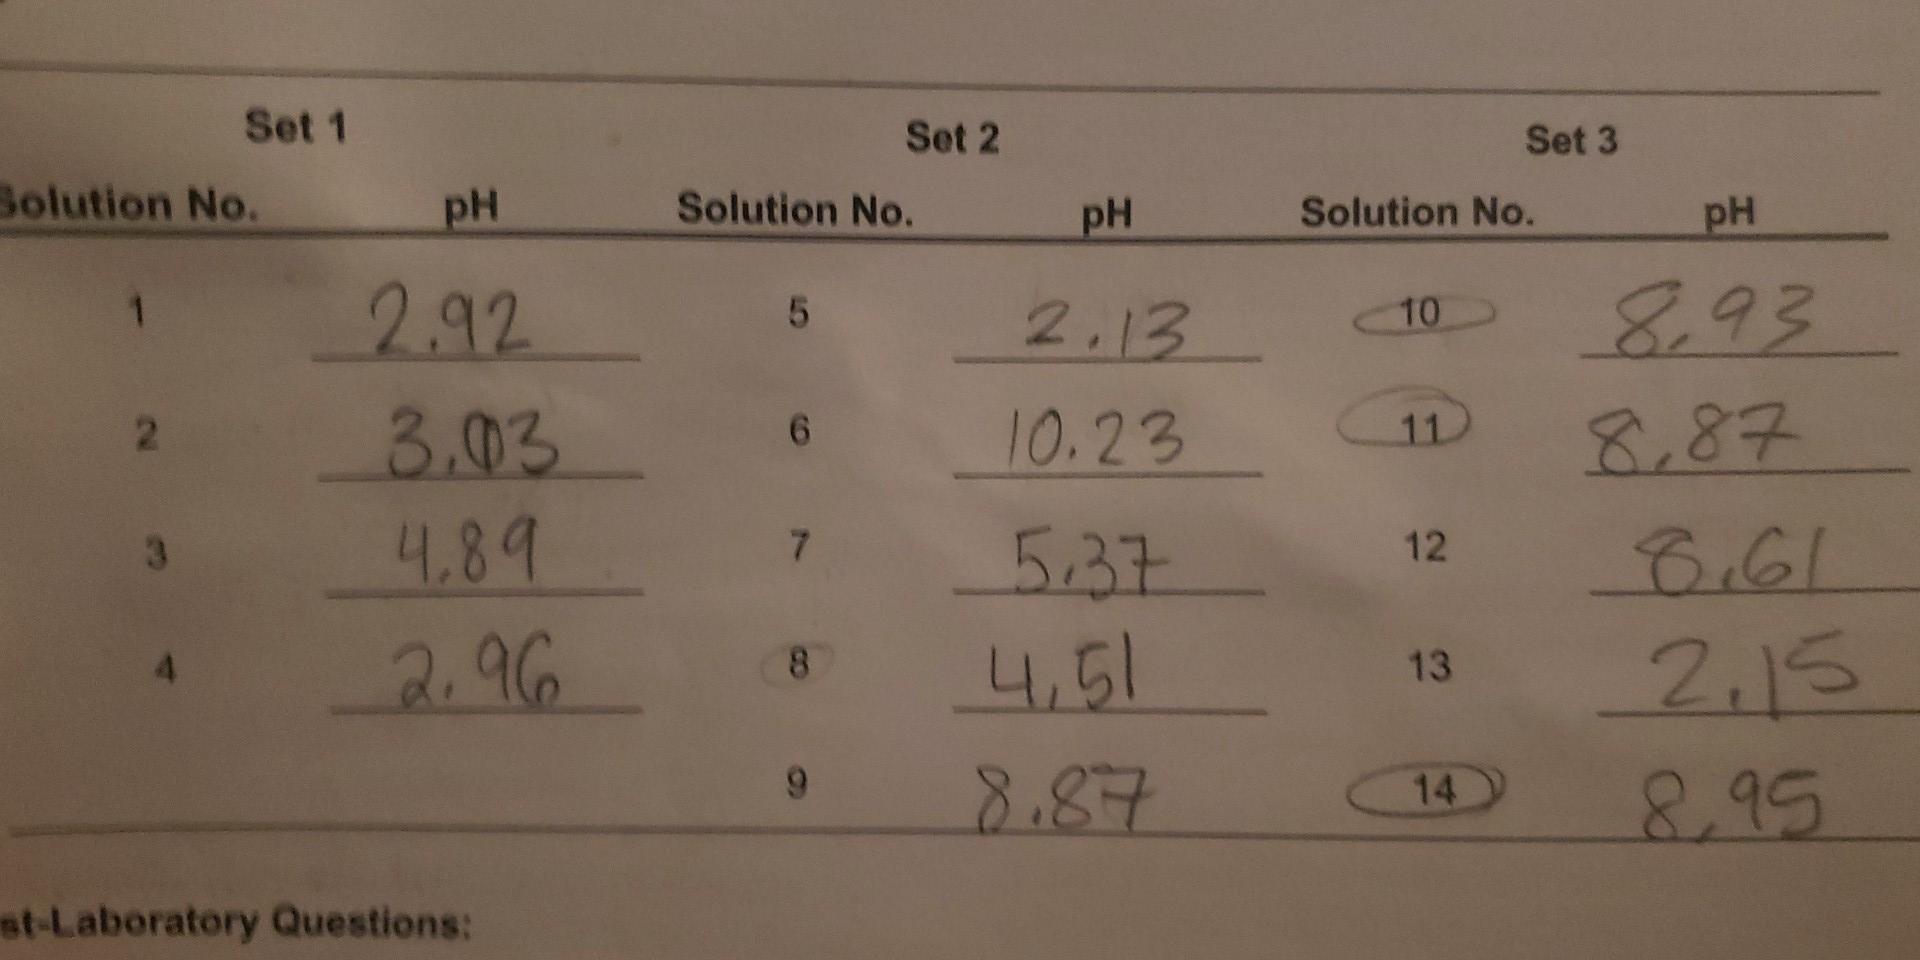 Set 1 Set 2 Set 3
Solution No. pH Solution No. pH Solution No. pH
1 2.92 5 2.13 10 8.93
2 3.03 6 10.23 11 8.87
3 4.89 7 5.37 12 8.61
4 2.96 8 4.51 13 2.15
9 8.87 14 8.95
st-Laboratory Questions: